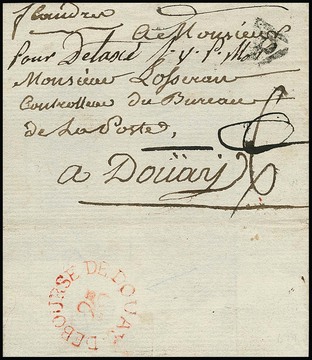 flandre
A Monsieur
Pour Delaxé
Monsieur Losseran
Controlleur du Bureau
de La Poste,
a Doüay
DEBOURSE DE DOUAY